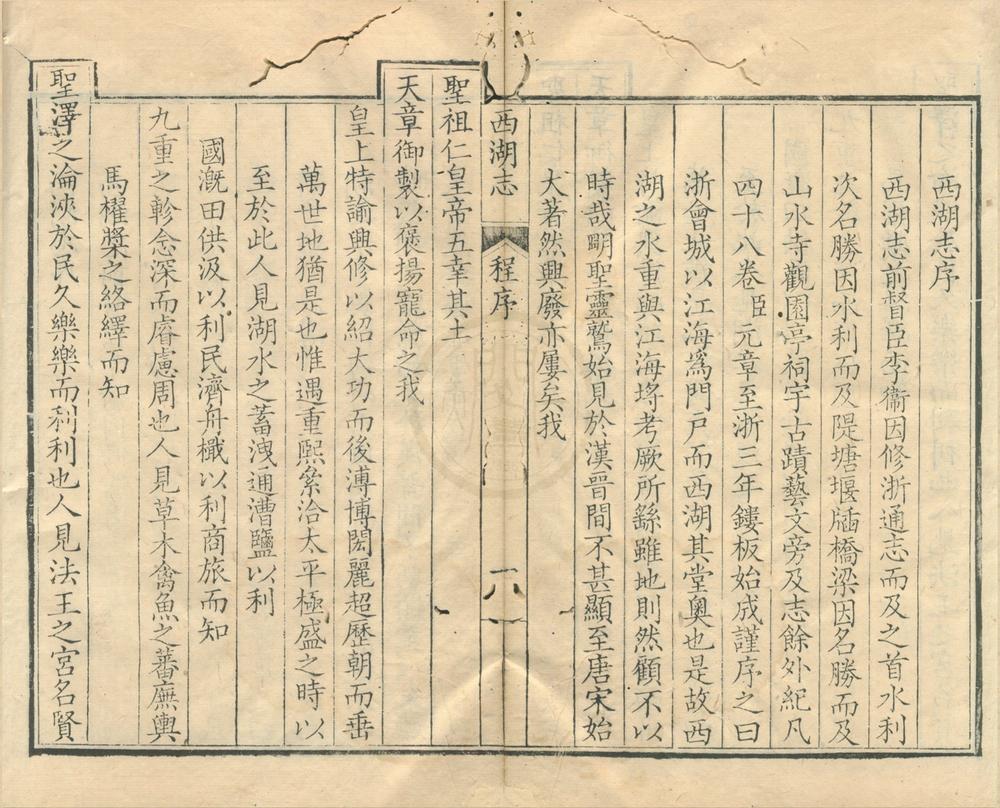 西湖志序
西湖志前督臣李衞因修浙通志而及之首水利
次名勝因水利而及隄塘堰牐橋梁因名勝而及
山水寺觀園亭祠宇古蹟藝文旁及志餘外紀凡
四十八卷臣元章至浙三年鏤板始成謹序之曰
浙會城以江海爲門戸而西湖其堂奧也是故西
湖之水重與江海埒考厥所繇雖地則然顧不以
時哉明聖靈鷲始見於漢晉間不甚顯至唐宋始
大著然興廢亦屢矣我
西湖志
程序
一八
聖祖仁皇帝五幸其土
天章御製以襃揚寵命之我
皇上特諭興修以紹大功而後溥博閎麗超歷朝而垂
萬世地猶是也惟遇重熙絫洽太平極盛之時以
至於此人見湖水之蓄洩通漕鹽以利
國漑田供汲以利民濟舟檝以利商旅而知
九重之軫念深而睿慮周也人見草木禽魚之蕃廡輿
馬櫂槳之絡繹而知
聖澤之淪浹於民久樂樂而利利也人見法王之宮名賢